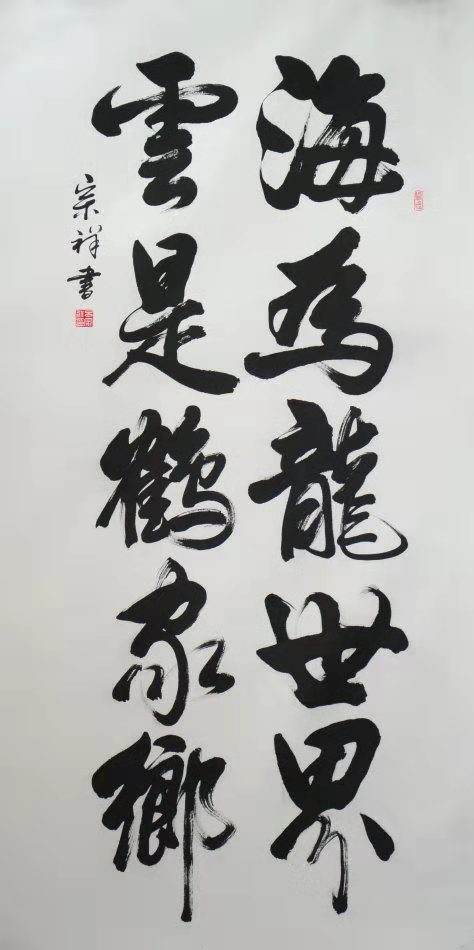 海為龍世界
雲是鶴家鄉
宗祥書